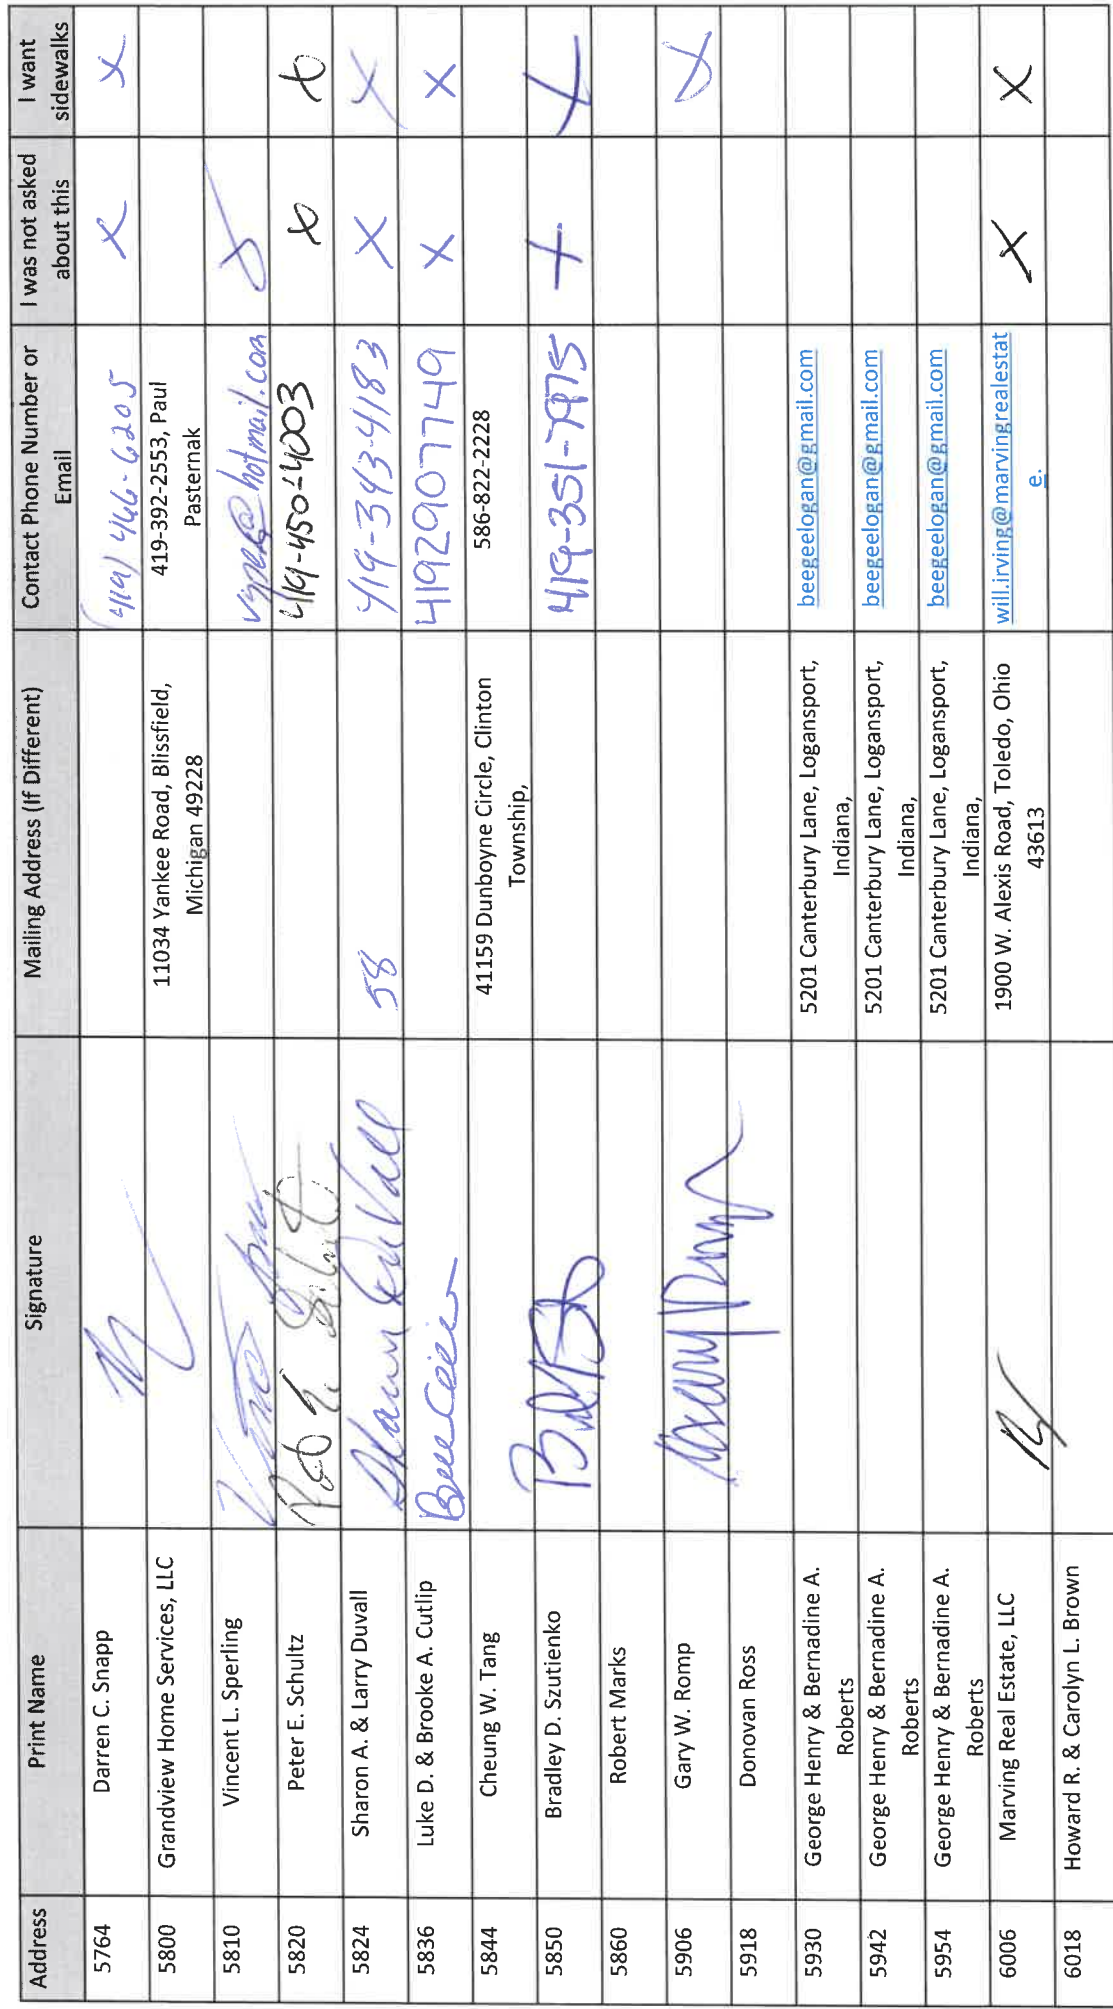 Address Print Name Signature Mailing Address (If Different) Contact Phone Number or Email I was not asked about this I want sidewalks
5764 Darren C. Snapp (419) 466-6205 X X
5800 Grandview Home Services, LLC 11034 Yankee Road, Blissfield, Michigan 49228 419-392-2553, Paul Pasternak
5810 Vincent L. Sperling @hotmail.com X
5820 Peter E. Schultz 419-450-4003 X X
5824 Sharon A. & Larry Duvall Sharon DuVall 58 419-343-4183 X X
5836 Luke D. & Brooke A. Cutlip 4192907749 X X
5844 Cheung W. Tang 41159 Dunboyne Circle, Clinton Township, 586-822-2228
5850 Bradley D. Szutienko 419-351-7975 X X
5860 Robert Marks
5906 Gary W. Romp X
5918 Donovan Ross
5930 George Henry & Bernadine A. Roberts 5201 Canterbury Lane, Logansport, Indiana, beegeelogan@gmail.com
5942 George Henry & Bernadine A. Roberts 5201 Canterbury Lane, Logansport, Indiana, beegeelogan@gmail.com
5954 George Henry & Bernadine A. Roberts 5201 Canterbury Lane, Logansport, Indiana, beegeelogan@gmail.com
6006 Marving Real Estate, LLC 1900 W. Alexis Road, Toledo, Ohio 43613 will.irving@marvingrealestate. X X
6018 Howard R. & Carolyn L. Brown